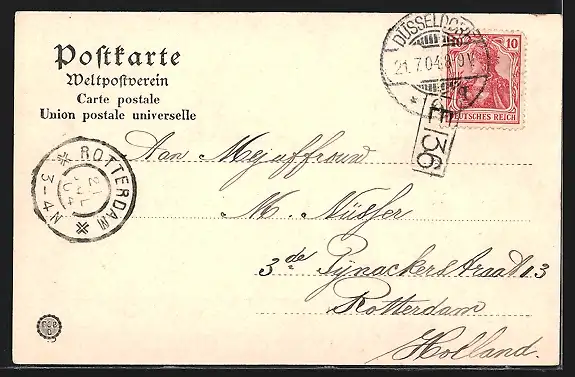 Postkarte
Weltpostverein
Carte postale
Union postale universelle
DÜSSELDORF
21.7.04.
1
10
DEUTSCHES REICH
E
36
ROTTERDAM
21 JUL 04
3-4 N
Aan Mejuffrouw
M. Nüsser
3de Pijnackerstraat 13
Rotterdam
Holland.